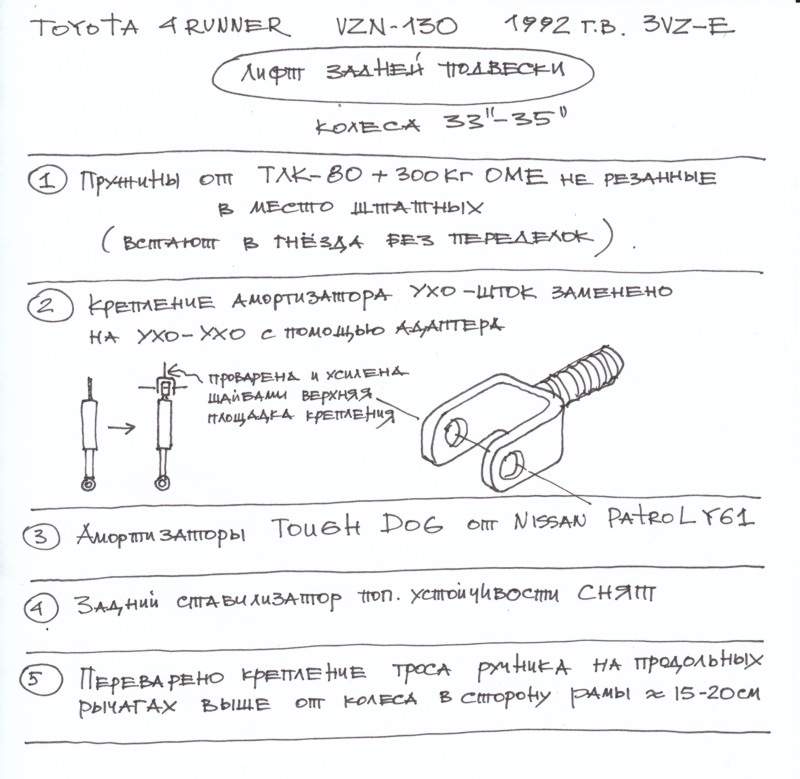 TOYOTA 4RUNNER VZN-130 1992 Г.В. 3VZ-E
ЛИФТ ЗАДНЕЙ ПОДВЕСКИ
КОЛЕСА 33"-35"
1 Пружины от ТЛК-80 + 300кг OME не резанные
в место штатных
(встают в гнёзда без переделок).
2 Крепление амортизатора ухо-шток заменено
на ухо-ухо с помощью адаптера
проварена и усилена
шайбами верхняя
площадка крепления
3 Амортизаторы TOUGH DOG от NISSAN PATROL Y61
4 Задний стабилизатор поп. устойчивости СНЯТ
5 Переварено крепление троса ручника на продольных
рычагах выше от колеса в сторону рамы ≈ 15-20см